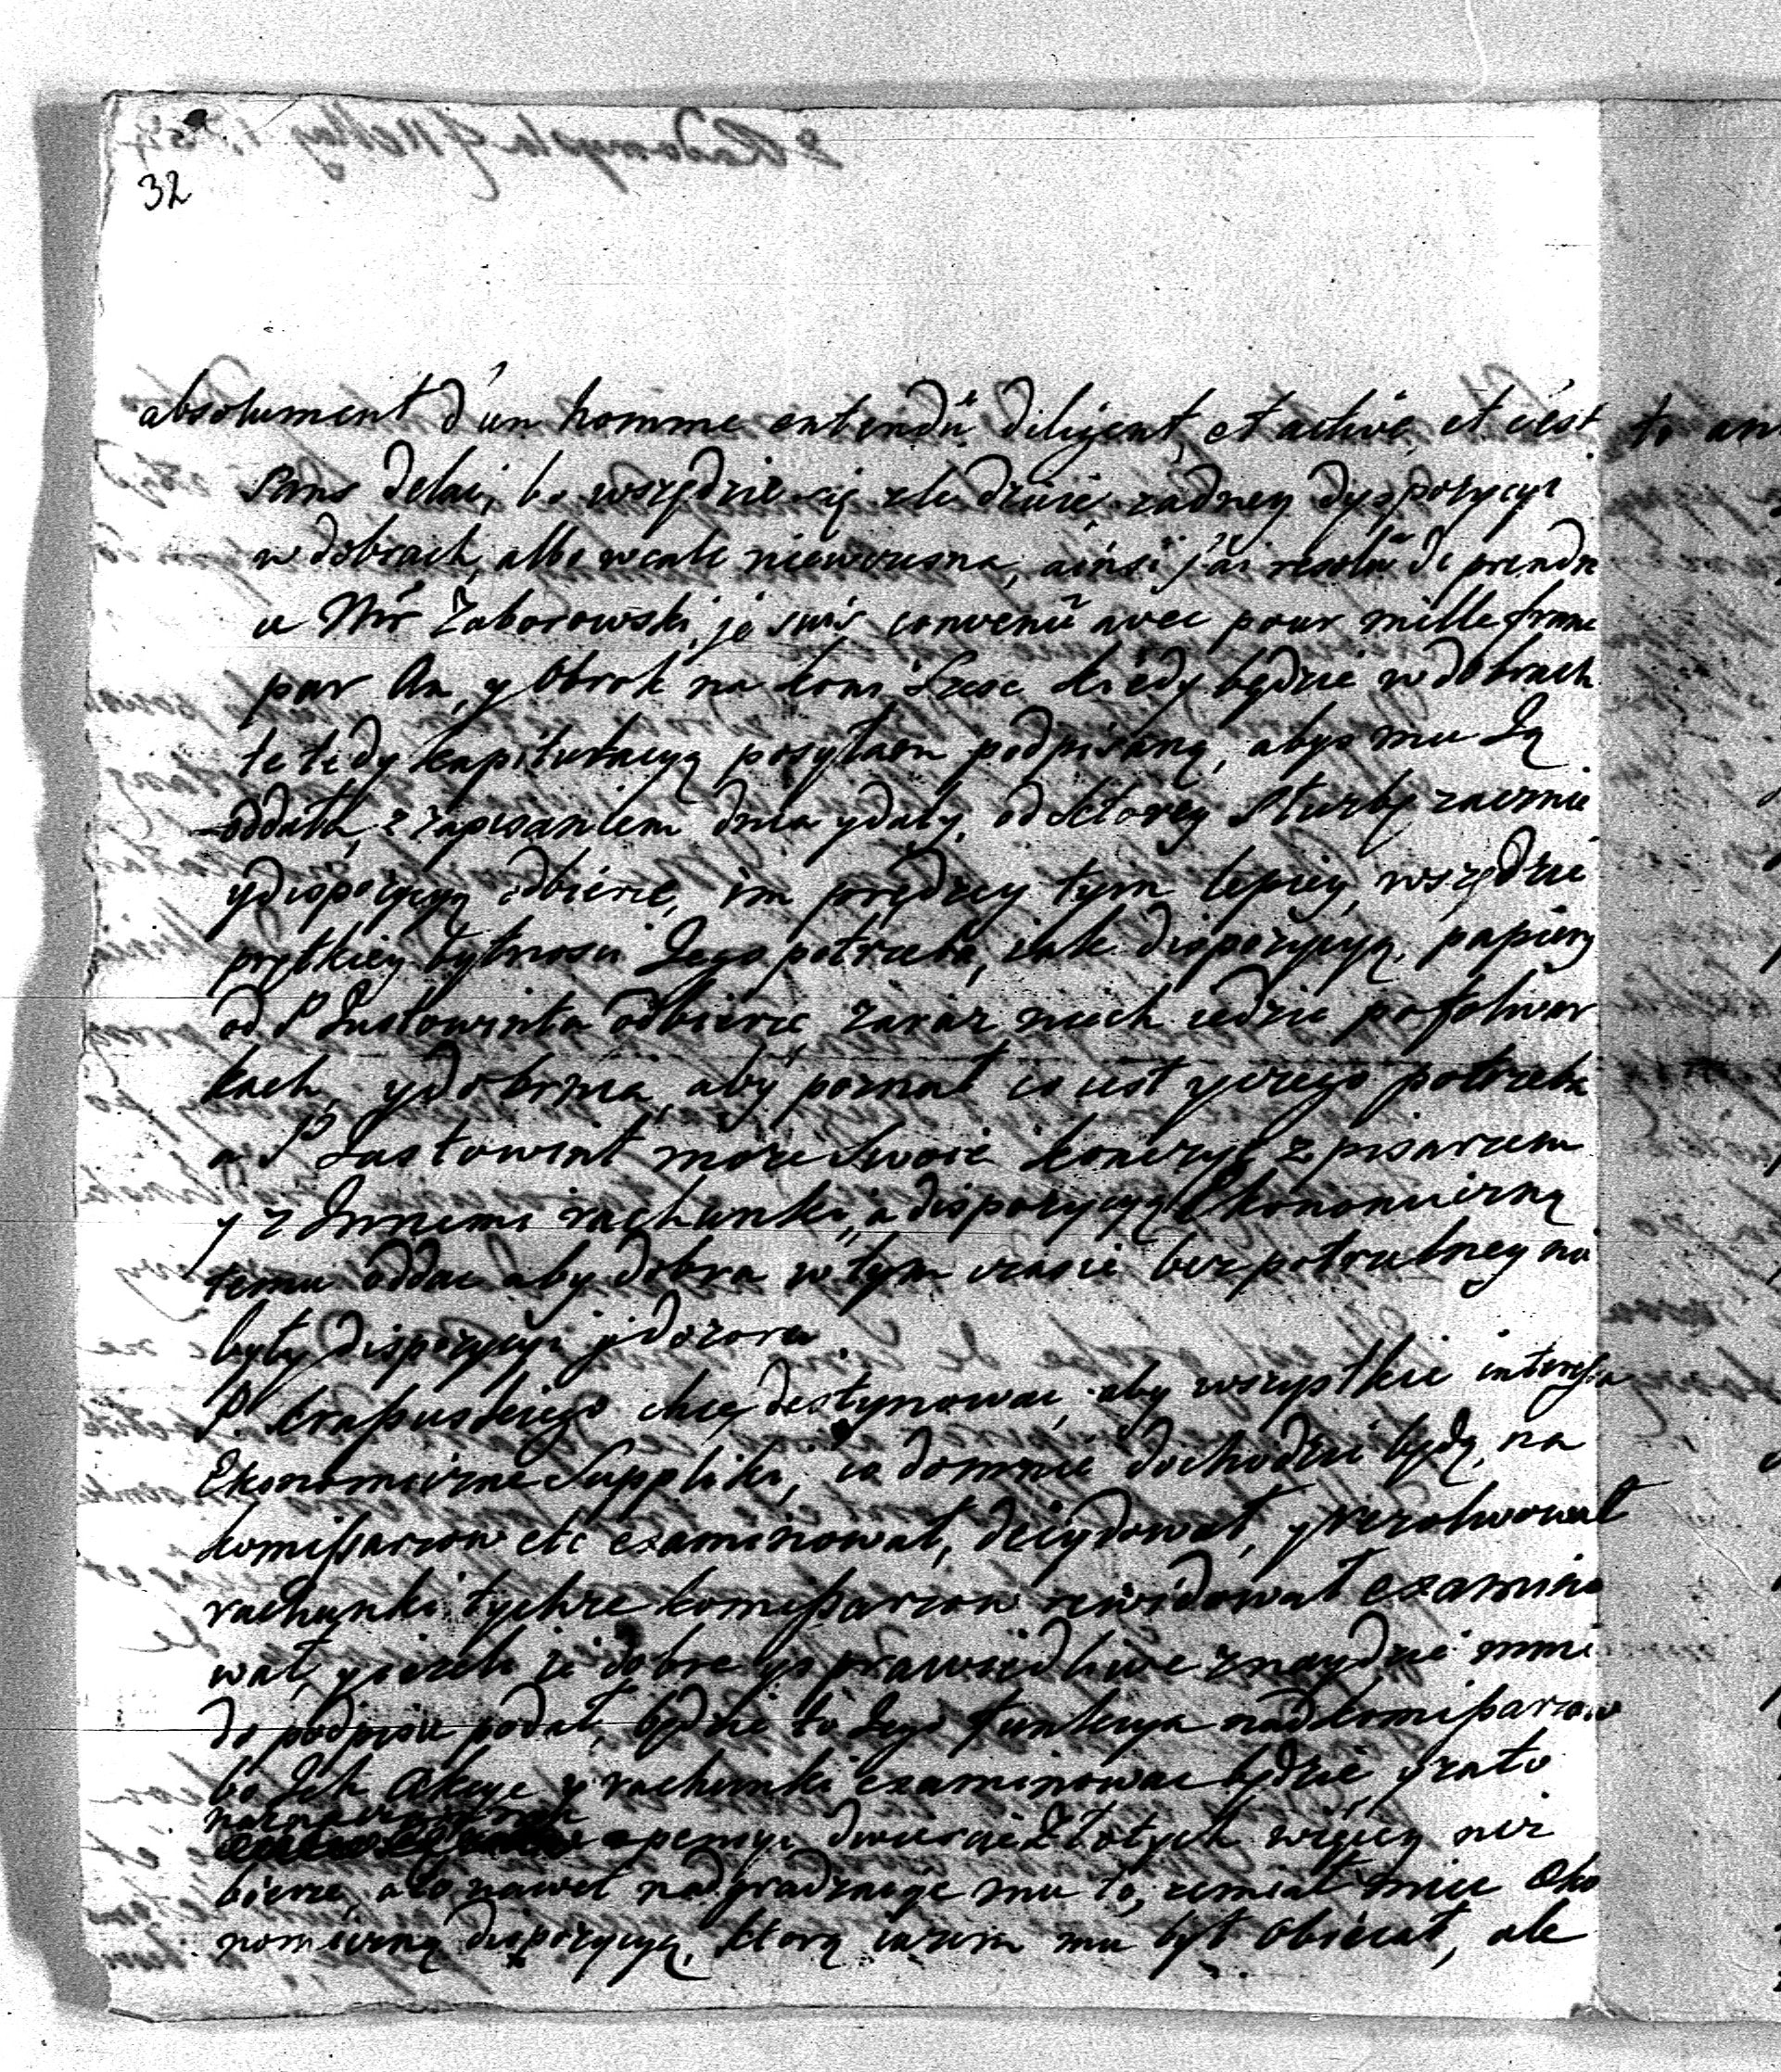 32
absolument d'un homme entendü diligent, et active, et c'est
Sans delai, bo wszędzie się zle dzieie, zadney dyspozycyi
w dobrach, albo wcale niewczesna, ainsi j'ai resolü de prendre
le Mr Zaborowski, je suis convenü avec pour mille franc
par An, y Obrok na koni Szesc kiedy będzie w dobrach
te tedy kapitulacyą posyłam podpisaną, abys mu Ją
oddała, z zapisaniem dnia y daty, od ktorey Służbę zacznie
y dispozycyą odbierze, im prędzey tym lepiey, wszędzie
prętkiey bytnosci Jego potrzeba, iak dispozycyą, papiery
od P Lustowinta odbierze, zaraz niech iedzie po folwar
kach, y dobrma, aby poznał co iest y czego potrzeba
a P Lustowint może Swoie konczyć z pisarzem
y z Innemi rachunki, a dispozycyą Ekonomiczną
temu oddac aby dobra w tym czasie bez potrzebney nie
były dispozycyi y dozoru.
P. Krapuskiego chcę destynowac, aby wszystkie interessa
Ekonomiczne Suppliki, co do mnie dochodzić będą, na
komissarzow etc examinował, decydował, y rezolwował
rachunki tychze komissarzow rewidował examino
wał, y iezeli ie dobre y sprawiedliwe znaydzie mnie
do podpisu podał, będzie to Jego funkcya nad komissarzow
bo Ich Akcye y rachunki examinowac będzie y za to
pensyi dwiescie Złotych więcey niz
bierze, a to nawet nadgradzaiąc mu to, ze miał miec Eko
nomiczną dispozycyą, ktorą iuzem mu był obiecał, ale